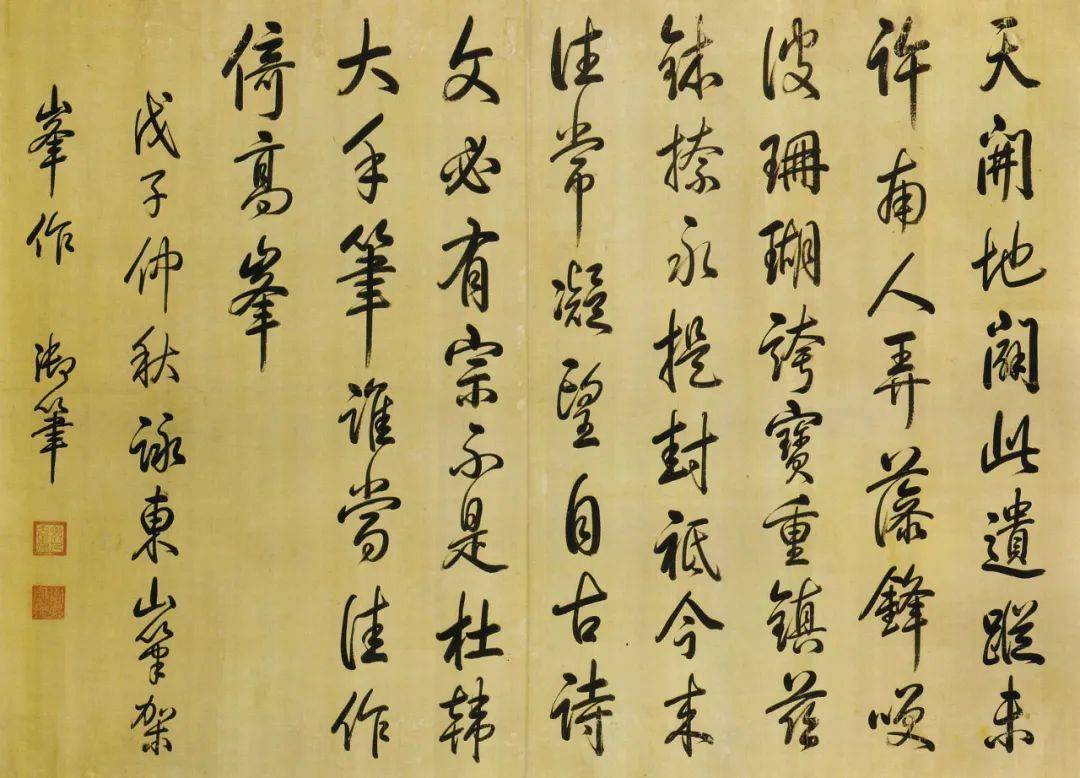 天開地闢此遺蹤未
許庸人弄藻鋒咲
彼珊瑚誇寶重鎮茲
鉢捺永提封祗今来
往常凝望自古詩
文必有宗不是杜韓
大手筆誰當佳作
倚高峯
戊子仲秋詠東山筆架
峯作 御筆